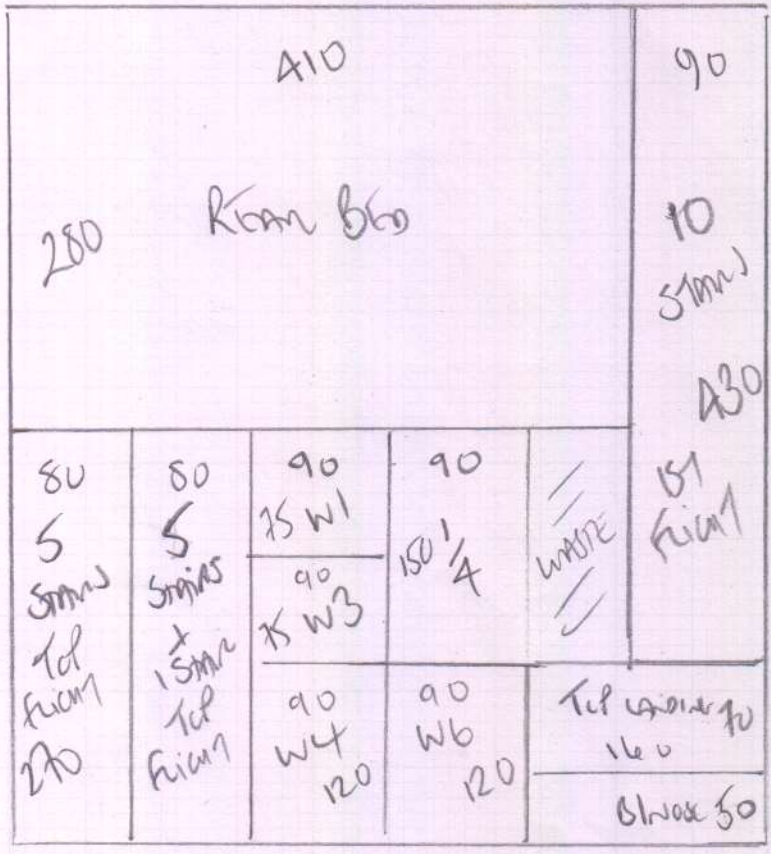 410
280
REAR BED
90
10
STAIRS
430
1ST
FLIGHT
80
5
STAIRS
TOP
FLIGHT
270
80
5
STAIRS
+
1 STAIR
TOP
FLIGHT
90
75 W1
90
75 W3
90
150 1/4
WASTE
90
W4
120
90
W6
120
TOP LANDING 70
160
50